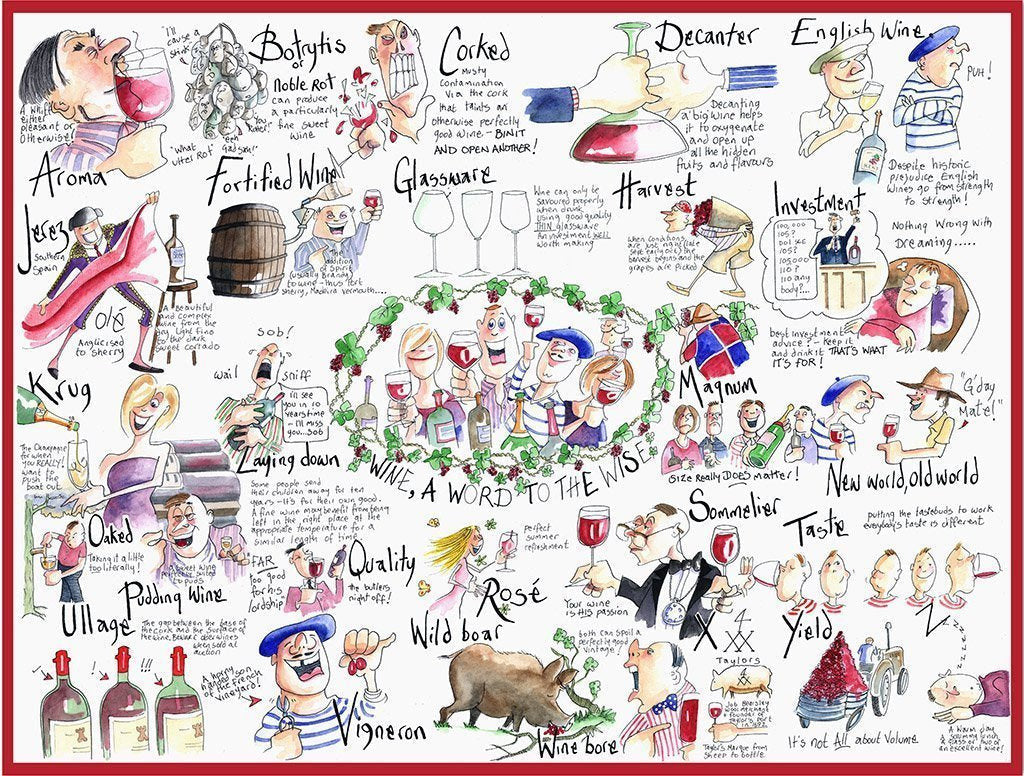 "I'll
cause a
stink"
A whiff
either
pleasant or
otherwise!
Aroma
Botrytis
or
Noble Rot
can produce
a particularly
fine sweet
wine
"You
Rotter!"
"eeh
Gadsby!"
"What
utter Rot
Corked
Musty
contamination
via the cork
that taints an
otherwise perfectly
good wine - BIN IT
AND OPEN ANOTHER!
Decanter
Decanting
a big wine helps
it to oxygenate
and open up
all the hidden
fruits and flavours
English Wine
PUH!
Despite historic
prejudice English
Wines go from strength
to strength!
Fortified Wine
The
addition
of Spirit
(usually Brandy)
to wine - thus Port
Sherry, Madeira Vermouth....
Glassware
Wine can only be
savoured properly
when drunk
using good quality
THIN glassware
An investment well
worth making
Harvest
When conditions
are just right (late
Sept/early Oct) the
harvest begins and the
grapes are picked
Investment
100,000
105?
Do I see
105?
105,000
110?
110 any
body?...
Nothing Wrong with
Dreaming.....
best Investment
advice? - Keep it
and drink it THAT'S WHAT
IT'S FOR!
Jerez
Southern
Spain
Olé
Anglicised
to Sherry
A Beautiful
and complex
wine from the
dry light fino
to the dark
sweet
Krug
The Champagne
for when
you REALLY!
want to
push the
boat out
Sob!
Wail
Sniff
I'll see
you in 10
years time
- I'll miss
you...Sob
Laying down
Some people send
their children away for ten
years - It's for their own good.
A fine wine may benefit from being
left in the right place at the
appropriate temperature for a
similar length of time.
WINE, A WORD TO THE WISE
Magnum
Size Really DOES matter!
"G'day
Mate!"
New world, old world
Oaked
Taking it a little
too literally!
Pudding Wine
A sweet wine
perfectly suited
to puds
Quality
"FAR
too good
for his
lordship"
the butler's
night off!
Rosé
perfect
summer
refreshment
Sommelier
Your wine
is HIS passion
Taste
putting the tastebuds to work
everybody's taste is different
Ullage
The gap between the base of
the cork and the surface of
the wine. Beware older wines
when sold at
auction
!
!!!
Vigneron
A horny
handed son
of the French
Vineyard!
Wild boar
both can spoil a
perfectly good
vintage!
Wine bore
X
Taylors
Job Bearsley
wool merchant
founder of
Taylor's Port
in 1692
Taylor's Marque from
sheep to bottle
Yield
It's not All about Volume
Zzzzzz
A warm day
a yummy lunch
a glass or two of
an excellent wine!